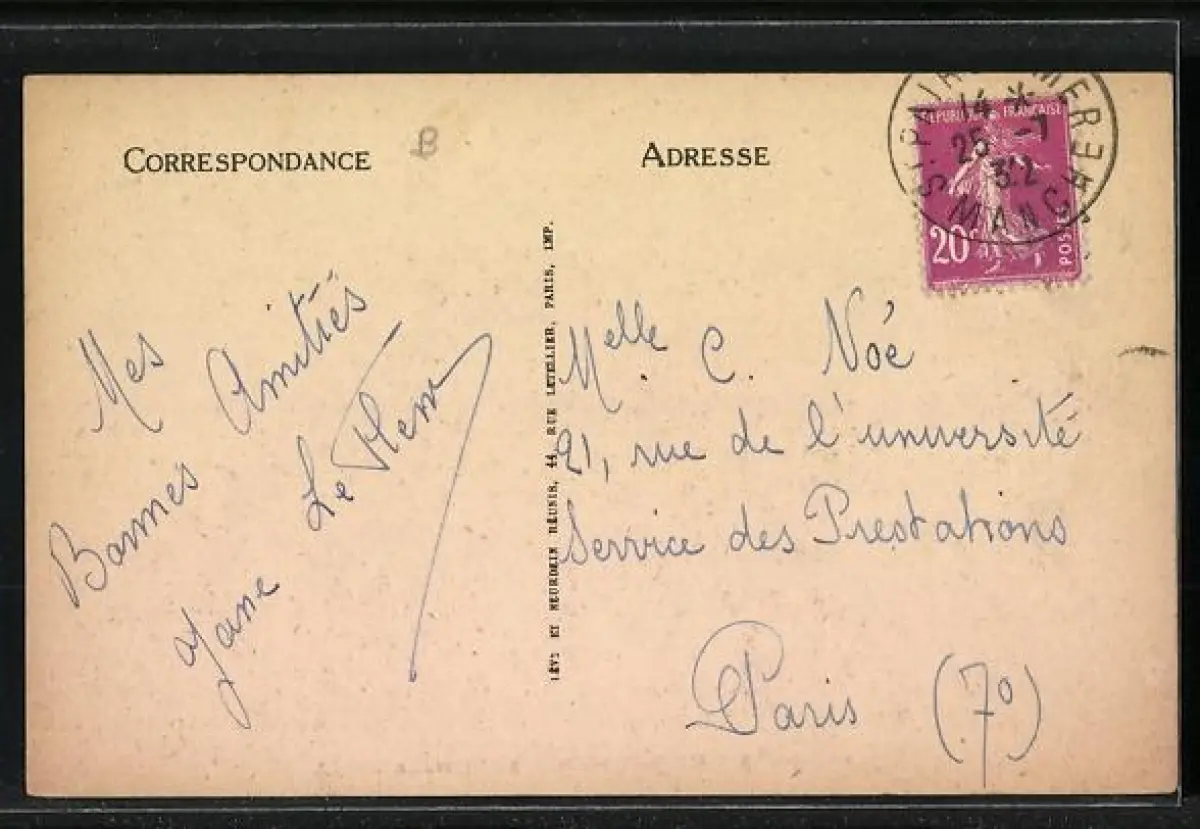 CORRESPONDANCE
B
Mes
Bonnes Amitiés
Jane Le Flem
LÉVY ET NEURDEIN RÉUNIS, 44, RUE LETELLIER, PARIS, IMP.
ADRESSE
ST PAIR S. MER
14 *
25 -7
32
MANCHE
REPUBLIQUE FRANÇAISE
20c
POSTES
Melle. C. Noé
21, rue de l'université
Service des Prestations
Paris (7º)